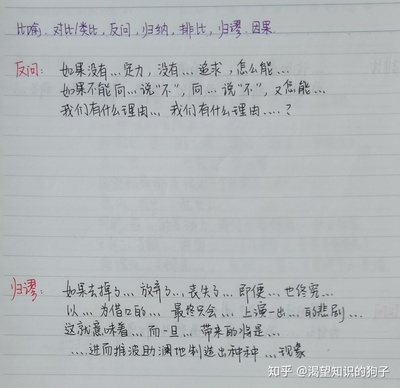 比喻，对比/类比，反问，归纳，排比，归谬，因果
反问：如果没有...定力，没有...追求，怎么能...
如果不能向...说"不"，向...说"不"，又怎能...
我们有什么理由...我们有什么理由....？
归谬：如果去掉了...放弃了...丧失了...即便...也终究...
以...为借口的...最终只会...上演一出...的悲剧...
这就意味着...而一旦...带来的将是...
....进而推波助澜地制造出种种...现象
知乎 @渴望知识的狗子